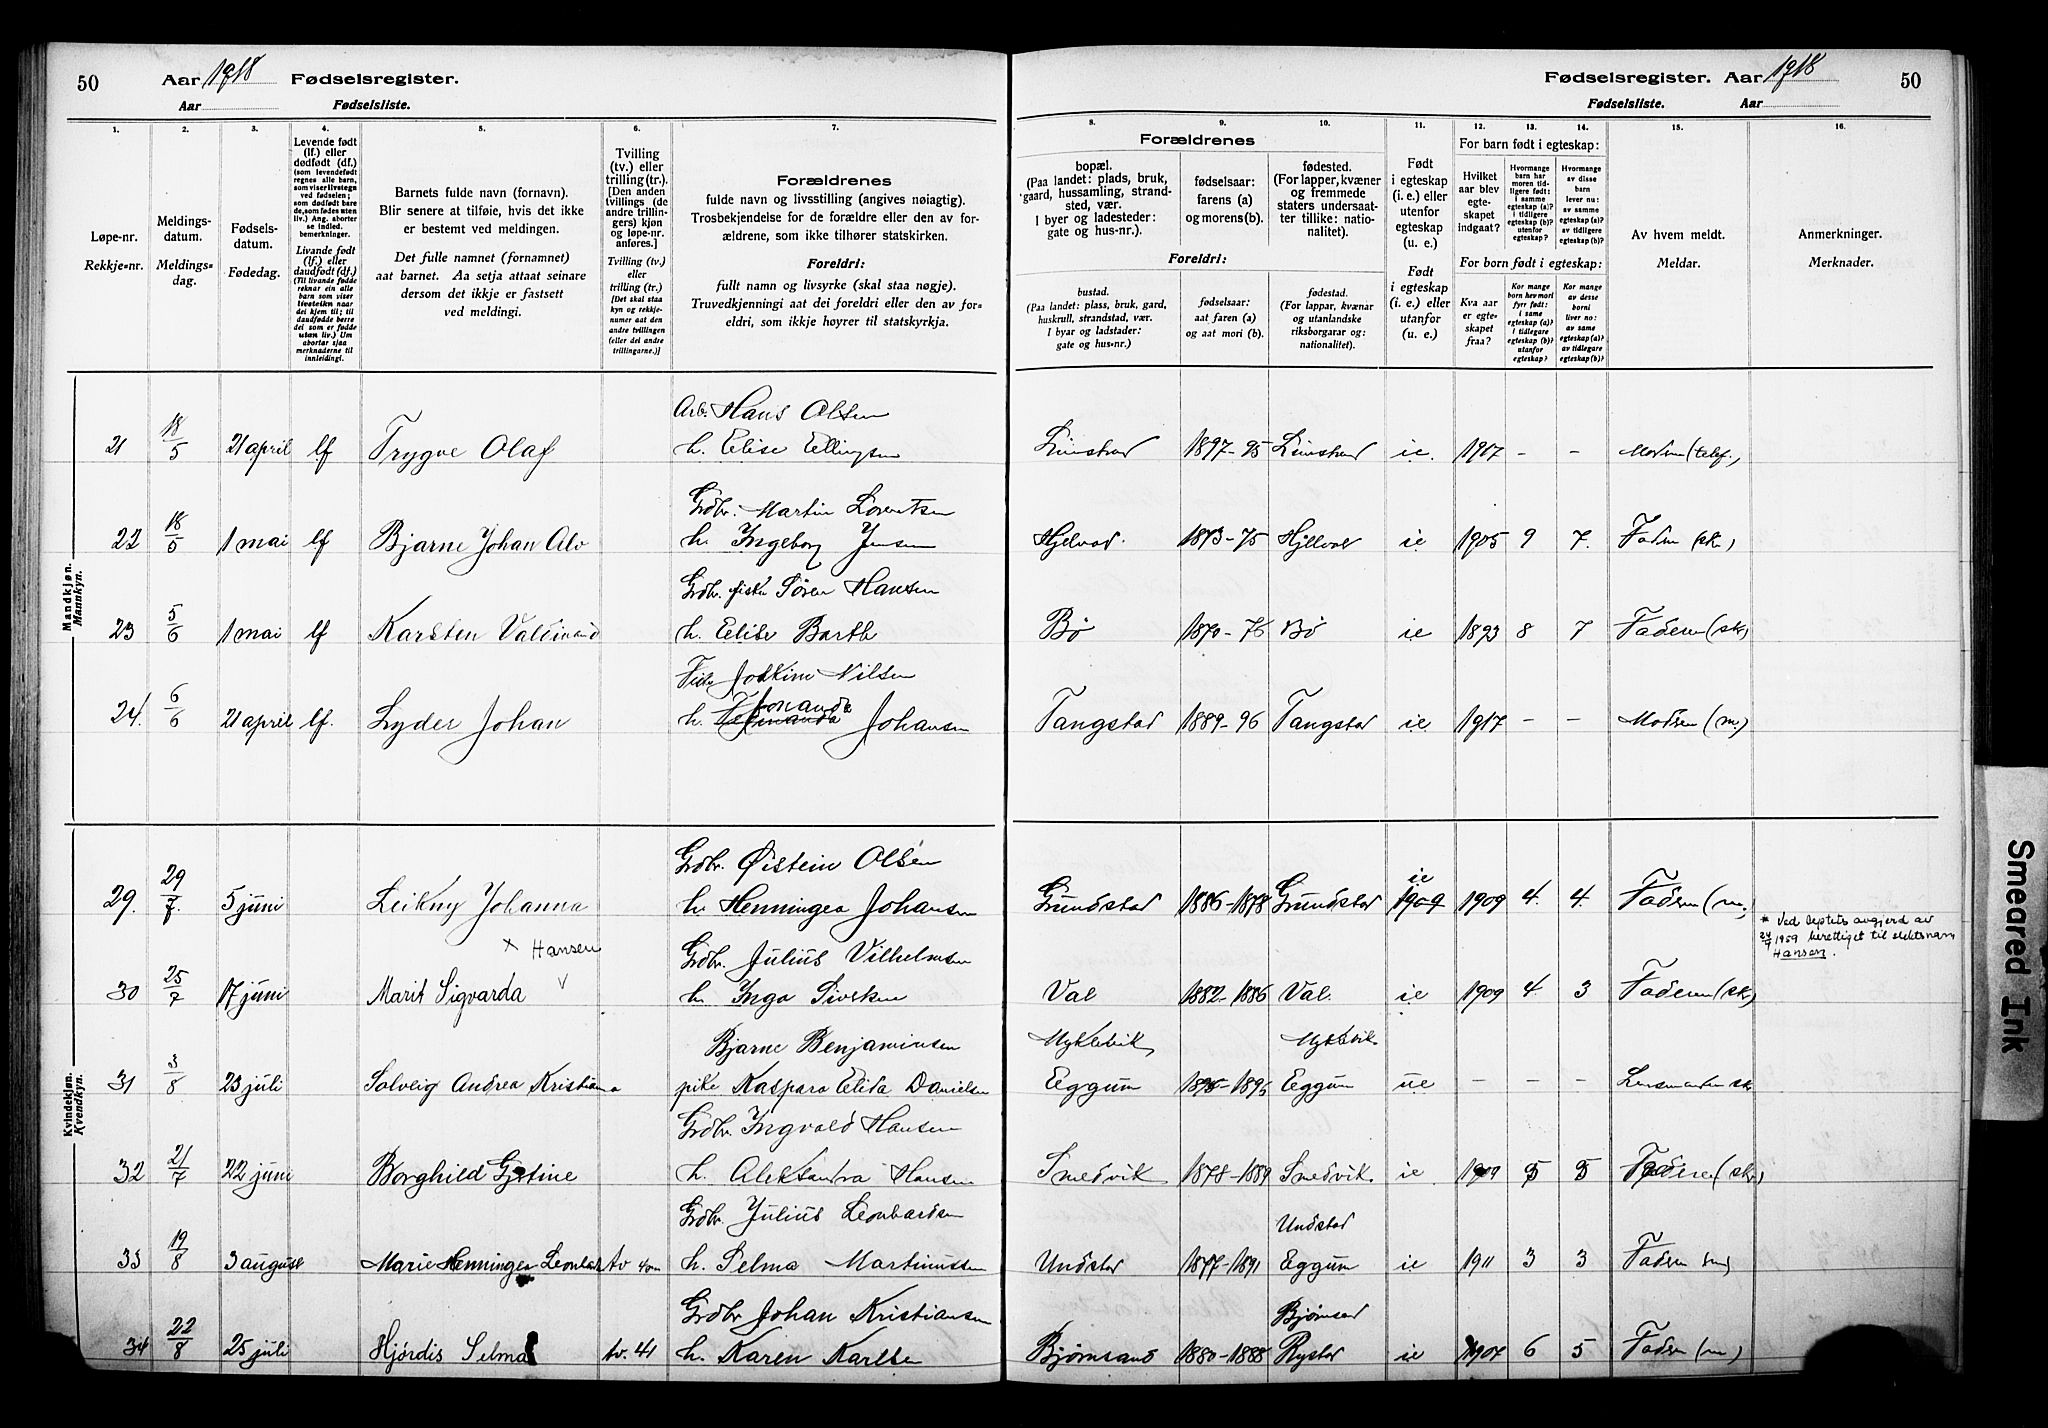 50 Aar 1918 Fødselsregister.
Aar Fødselsliste.
Fødselsregister. Aar 1918 50
Fødselsliste. Aar
1. 2. 3. 4. 5. 6. 7. 8. 9. 10. 11. 12. 13. 14. 15. 16.
Løpe-nr.
Rekkje-nr.
Meldings-
datum.
Meldings-
dag.
Fødsels-
datum.
Fødedag.
Levende født
(lf.) eller
dødfødt (df.)
(som levendefødt
regnes alle barn,
som viser livstegn
ved fødselen;
som dødfødt bare
de, som fødes uten
liv.) Ang. aborter
se indled.
bemerkninger.
Livande født
(lf.) eller
daudfødt (df.)
(Til livande fødde
reknar ein alle
born som viser
livsteikn naar
dei kjem til; til
daudfødde berre
dei som er fødde
utan liv.) Um
abortar sjaa
merknaderne til
innleidingi.
Barnets fulde navn (fornavn).
Blir senere at tilføie, hvis det ikke
er bestemt ved meldingen.
Det fulle namnet (fornamnet)
aat barnet. Aa setja attaat seinare
dersom det ikkje er fastsett
ved meldingi.
Tvilling
(tv.) eller
trilling (tr.).
[Den anden
tvillings (de
andre trillin-
gers) kjøn
og løpe-nr.
anføres.]
Tvilling (tv.)
eller
trilling (tr.)
[Det skal staa
kyn og rekkje-
numer aat den
andre tvillingen
(eller dei andre
trillingarne.)]
Forældrenes
fulde navn og livsstilling (angives nøiagtig).
Trosbekjendelse for de forældre eller den av for-
ældrene, som ikke tilhører statskirken.
Foreldri:
fullt namn og livsyrke (skal staa nøgje).
Truvedkjenningi aat dei foreldri eller den av for-
eldri, som ikkje høyrer til statskyrkja.
Forældrenes
bopæl.
(Paa landet: plads, bruk,
gaard, hussamling, strand-
sted, vær.
I byer og ladesteder:
gate og hus-nr.).
fødselsaar:
farens (a)
og morens (b).
fødested.
(For lapper, kvæner
og fremmede
staters undersaat-
ter tillike: natio-
nalitet).
Foreldri:
bustad.
(Paa landet: plass, bruk, gard,
huskrull, strandstad, vær.
I byar og ladstader:
gate og hus-nr.)
fødselsaar:
aat faren (a)
og aat mori (b).
fødestad.
(For lappar, kvænar
og utanlandske
riksborgarar og:
nationalitet).
Født
i egteskap
(i. e.) eller
utenfor
egteskap
(u. e.)
Født
i egteskap
(i. e.) eller
utanfor
(u. e.)
For barn født i egteskap:
Hvilket
aar blev
egte-
skapet
indgaat?
Hvormange
barn har
moren tid-
ligere født:
i samme
egteskap (a)?
i tidligere
egteskap (b)?
utenfor
egteskap?
Hvormange
av disse
barn
lever nu:
av samme
egteskap (a)?
av tidligere
egteskap (b)?
For born født i egteskap:
Kva aar
er egte-
skapet
fraa?
Kor mange
born hev mori
fyrr født:
i same
egteskap (a)?
i tidlegare
egteskap (b)?
utanfor
egteskap?
Kor mange
av desse
borni
liver no:
av same
egteskap (a)?
av tidlegare
egteskap (b)?
Av hvem meldt.
Meldar.
Anmerkninger.
Merknader.
Mandkjøn.
Mannkyn.
Arb. Hans Olsen
21 18/5 21 april lf Trygve Olaf h. Elise Ellingsen Limstrad 1897-95 Limstrad ie. 1917 - - Modren (telef.)
Gdbr. Martin Lorentsen
22 18/5 1 mai lf Bjarne Johan Alv h. Ingeborg Jensen Hjelvad. 1873-75 ie 1905 9 7. Fadren (skr.)
Gdbr. fisk Søren Hansen
23 5/6 1 mai lf Karsten Valdimand h. Elise Barth Bø 1870-76 Bø ie 1893 8 7 Faderen (skr)
Fisk Joakim Nilsen
Jonanda
24. 6/6 21 april lf. Lyder Johan h. Johansen Tangstad 1889-96 Tangstad ie 1917 - - Modren (m.)
Kvindekjøn.
Kvendkyn.
Gdbr. Øistein Olsen
ie
29. 29/7. 5 juni Leikny Johanna h. Henningea Johansen Grundstad 1886-1878 Grundstad 1909 1909 4. 4. Faderen (m.)
x Hansen
* Ved Deptets avgjerd av
24/7 1959 berettiget til slektsnavn
Hansen.
Gdbr. Julius Vilhelmsen
30 25/7 17 juni Marit Sigvarda v h. Inga Sivertsen Val 1882-1886 Val. ie 1909 4. 3 Faderen (skr)
Bjarne Benjaminsen Myklevik Myklevik
31 3/8 23 juli Solveig Andrea Kristiana pike Kaspara Elida Danielsen Eggum 1898-1895 Eggum ue - - - Lensmanden skr
Gdbr. Ingvald Hansen
32 21/7 22 juni Borghild Gjetine h. Aleksandra Hansen Smedvik 1878-1889 Smedvik ie 1909 5 5 Faderen (skr)
Gdbr. Julius Leonhardsen Undstad
33 19/8 3 august Marie Henningea Leonharda tv h. Selma Martinussen Undstad 1877-1891 Eggum ie 1911 3 3 Fadren (m)
Gdbr Johan Kristiansen Bjørnsand
34 22/8 25 juli Hjórdis Selma tv. 41 h. Karen Karlsen Bjørnsand 1880-1888 Rystad ie 1907 6 5 Fadren (m)
Smeared Ink